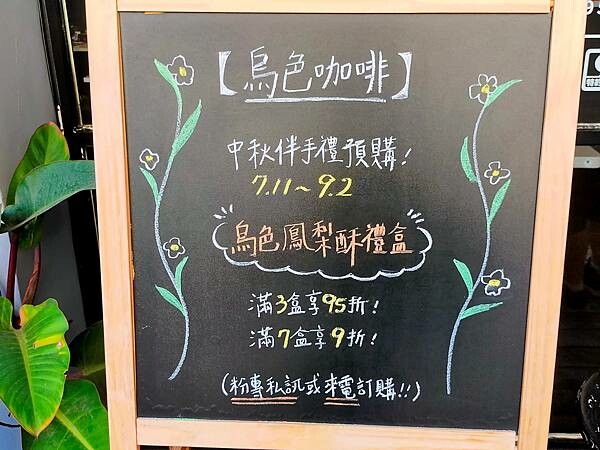 【烏色咖啡】
中秋伴手禮預購!
7.11~9.2
烏色鳳梨酥禮盒
滿3盒享95折!
滿7盒享9折!
(粉專私訊或來電訂購!!)